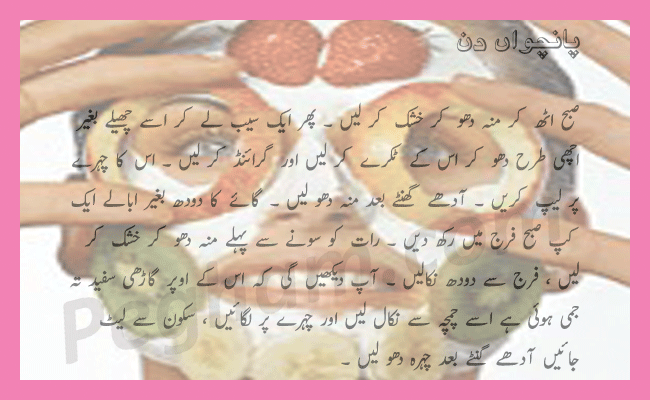 پانچواں دن
صبح اٹھ کر منہ دھو کر خشک کر لیں ۔ پھر ایک سیب لے کر اسے چھیلے بغیر
اچھی طرح دھو کر اس کے ٹکرے کر لیں اور گرائنڈ کر لیں ۔ اس کا چہرے
پر لیپ کریں ۔ آدھے گھنٹے بعد منہ دھو لیں ۔ گائے کا دودھ بغیر ابالے ایک
کپ صبح فرج میں رکھ دیں ۔ رات کو سونے سے پہلے منہ دھو کر خشک کر
لیں ، فرج سے دودھ نکالیں ۔ آپ دیکھیں گی کہ اس کے اوپر گاڑھی سفید تہ
جمی ہوئی ہے اسے چمچہ سے نکال لیں اور چہرے پر لگائیں ، سکون سے لیٹ
جائیں آدھے گنٹے بعد چہرہ دھو لیں ۔